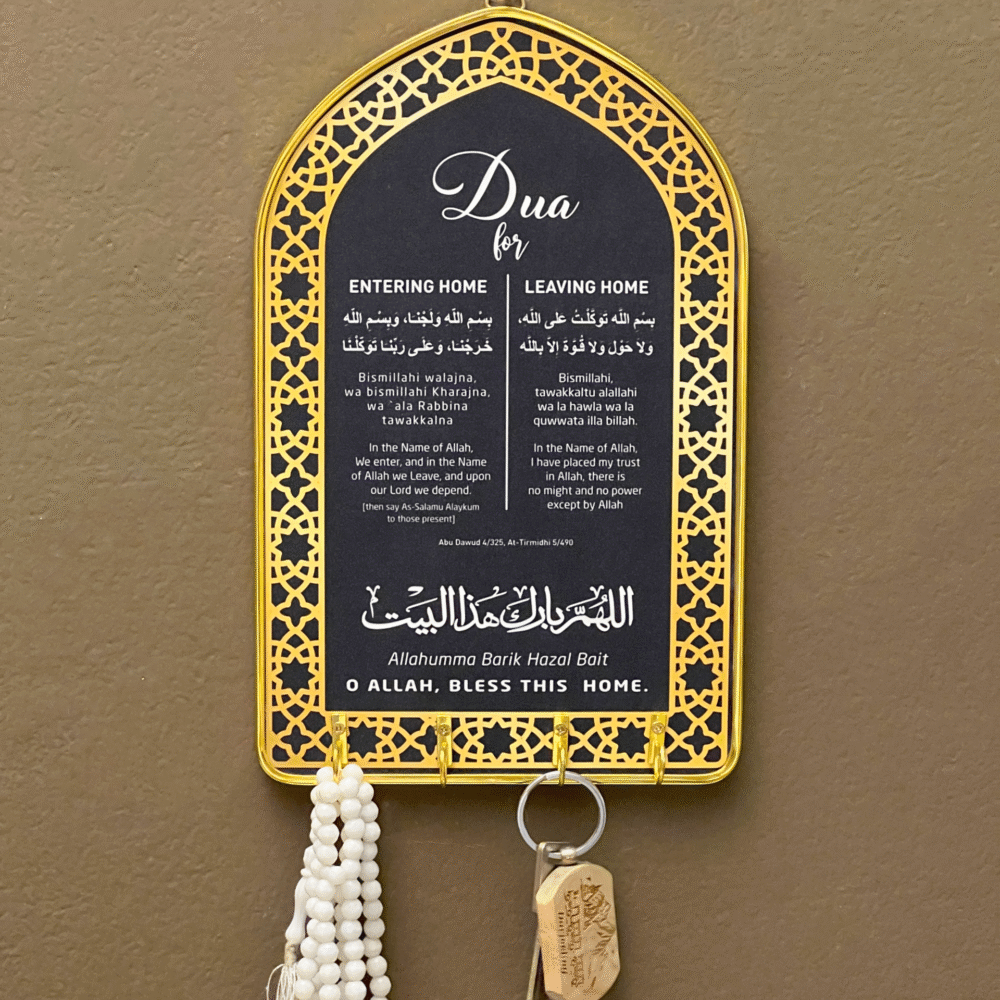 Dua
for
ENTERING HOME
بِسْمِ اللَّهِ وَلَجْنَا، وَبِسْمِ اللَّهِ
خَرَجْنَا، وَعَلَى رَبِّنَا تَوَكَّلْنَا
Bismillahi walajna,
wa bismillahi Kharajna,
wa `ala Rabbina
tawakkalna
In the Name of Allah,
We enter, and in the Name
of Allah we Leave, and upon
our Lord we depend.
[then say As-Salamu Alaykum
to those present]
LEAVING HOME
بِسْمِ اللَّهِ تَوَكَّلْتُ عَلَى اللَّهِ،
وَلاَ حَوْلَ وَلاَ قُوَّةَ إِلاَّ بِاللَّهِ
Bismillahi,
tawakkaltu alallahi
wa la hawla wa la
quwwata illa billah.
In the Name of Allah,
I have placed my trust
in Allah, there is
no might and no power
except by Allah
Abu Dawud 4/325, At-Tirmidhi 5/490
اللهم بارك هذا البيت
Allahumma Barik Hazal Bait
O ALLAH, BLESS THIS HOME.